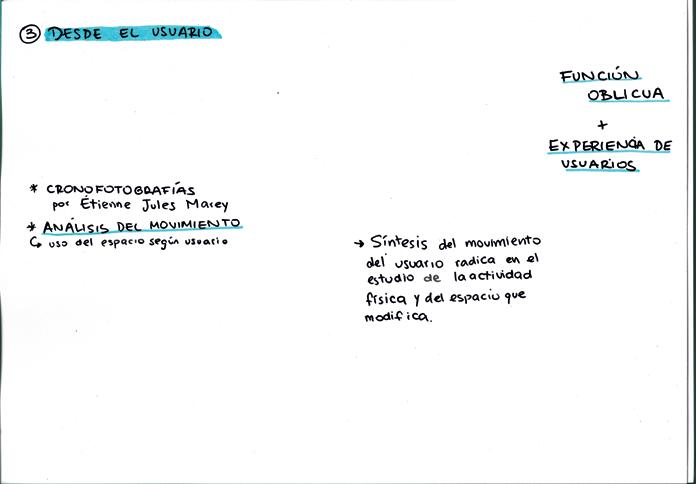 ③ DESDE EL USUARIO
FUNCIÓN
OBLICUA
+
EXPERIENCIA DE
USUARIOS
* CRONOFOTOGRAFÍAS
por Étienne Jules Marey
* ANÁLISIS DEL MOVIMIENTO
↳ uso del espacio según usuario
→ Síntesis del movimiento
del usuario radica en el
estudio de la actividad
física y del espacio que
modifica.